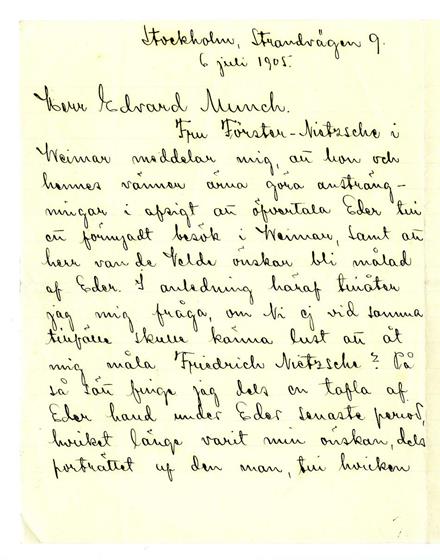 Stockholm, Strandvägen 9.
6 juli 1905.
Herr Edvard Munch.
Fru Förster-Nietzsche i
Weimar meddelar mig, att hon och
hennes vänner ärna göra ansträng-
ningar i afsigt att öfvertala Eder till
ett förnyadt besök i Weimar, samt att
herr van de Velde önskar bli målad
af Eder. I anledning häraf tillåter
jag mig fråga, om Ni ej vid samma
tillfälle skulle känna lust att åt
mig måla Friedrich Nietzsche? På
så sätt finge jag dels en tafla af
Eder hand under Eder senaste period,
hvilket länge varit min önskan, dels
porträttet af den man, till hvilken